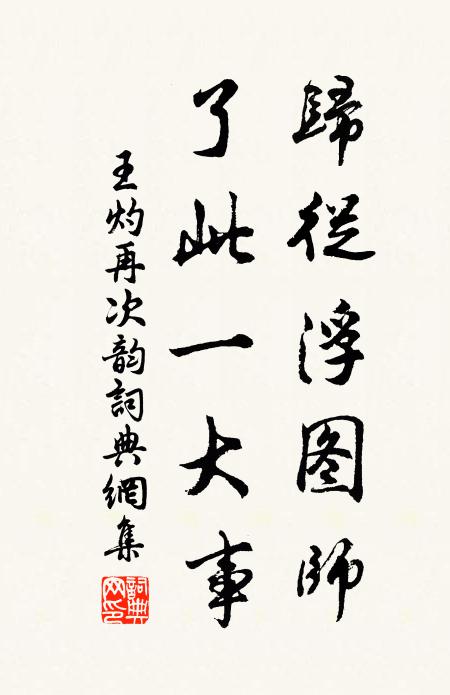 歸從浮图師
了此一大事
王灼再次韵詞典網集
詞典网印